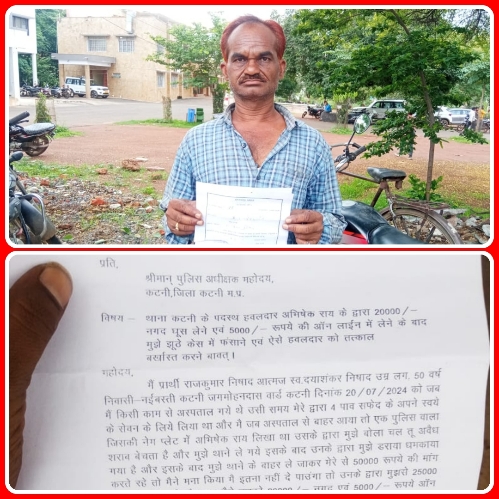 प्रति,
श्रीमान् पुलिस अधीक्षक महोदय,
कटनी,जिला कटनी म.प्र.
विषय – थाना कटनी के पदस्थ हवलदार अभिषेक राय के द्वारा 20000/–
नगद घूस लेने एवं 5000/– रूपये की ऑन लाईन में लेने के बाद
मुझे झूठे केस में फंसाने एवं ऐसे हवलदार को तत्काल
बर्खास्त करने बावत्।
महोदय,
मैं प्रार्थी राजकुमार निषाद आत्मज स्व.दयाशंकर निषाद उम्र लग. 50 वर्ष
निवासी–नईबस्ती कटनी जगमोहनदास वार्ड कटनी दिनांक 20/07/2024 को जब
मैं किसी काम से अस्पताल गये थे उसी समय मेरे द्वारा 4 पाव सफेद के अपने स्वयं
के सेवन के लिये लिया था और मैं जब अस्पताल से बाहर आया तो एक पुलिस वाला
जिसकी नेम प्लेट में अभिषेक राय लिखा था उसके द्वारा मुझे बोला चल तू अवैध
शराब बेचता है और मुझे थाने ले गये इसके बाद उनके द्वारा मुझे डराया धमकाया
गया है और इसके बाद मुझे थाने के बाहर ले जाकर मेरे से 50000 रूपये की मांग
करते रहे तो मैंने मना किया मैं इतना नहीं दे पाउंगा तो उनके द्वारा मुझसे 25000
नगद एवं 5000/– रूपये ऑन